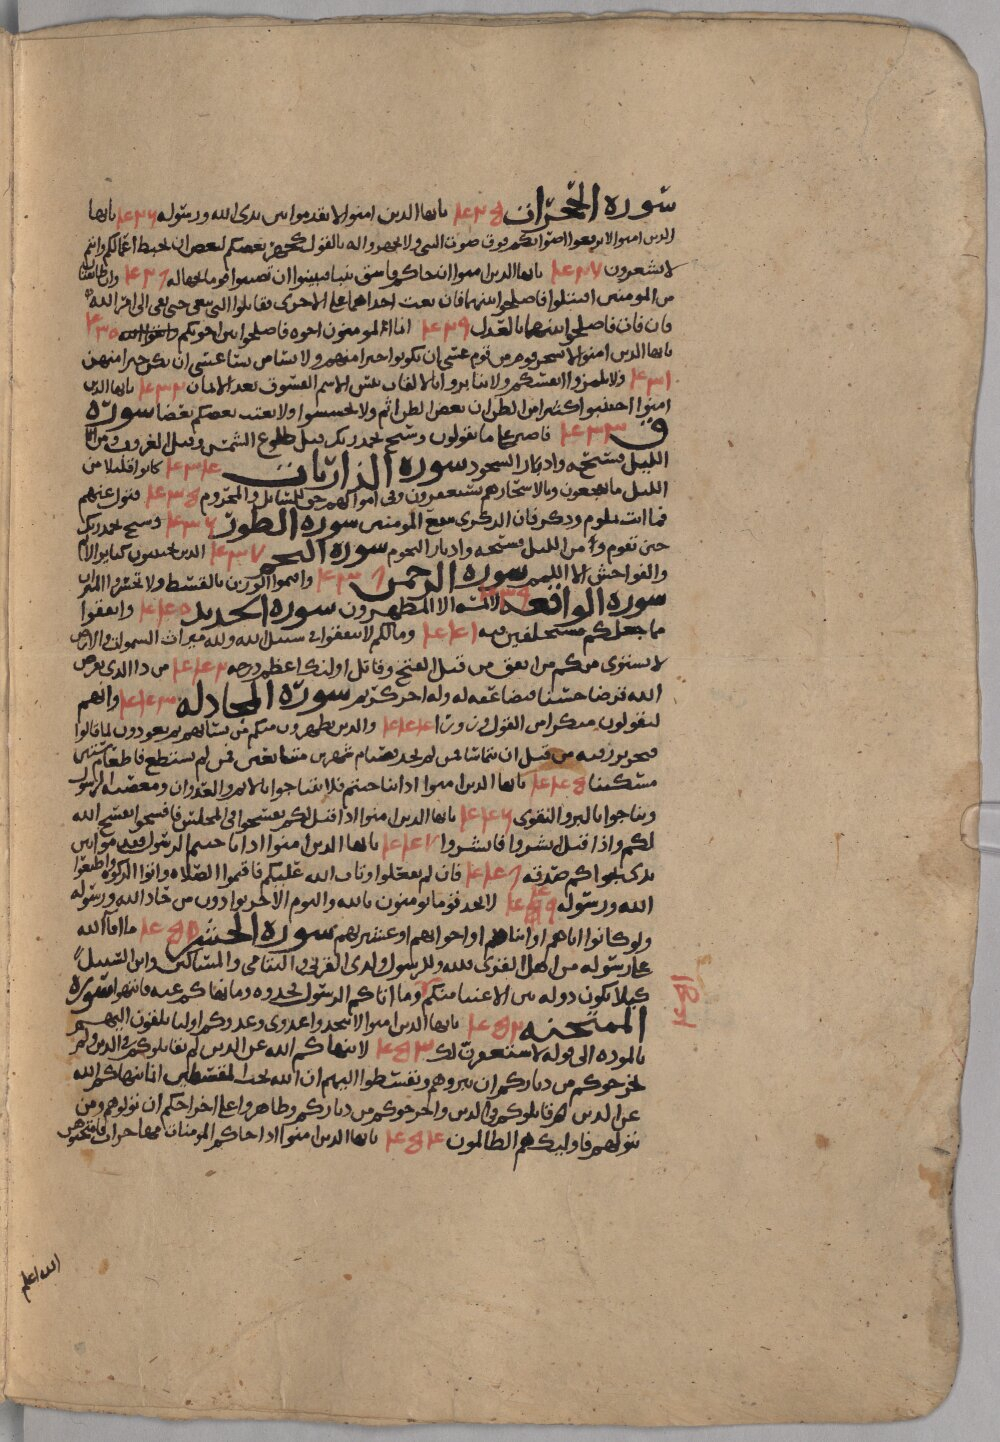 سورة الحجرات ٤٢٥ ياايها الذين امنوا لا تقدموا بين يدى الله ورسوله ٤٢٦ ياايها
الذين امنوا لا ترفعوا اصواتكم فوق صوت النبي ولا تجهروا له بالقول كجهر بعضكم لبعض ان تحبط اعمالكم وانتم
لا تشعرون ٤٢٧ ياايها الذين امنوا ان جاكم فاسق بنبا فتبينوا ان تصيبوا قوما بجهالة ٤٢٨ وان طائفتان
من المومنين اقتتلوا فاصلحوا بينهما فان بغت احداهما على الاخرى فقاتلوا التي تبغى حتى تفى الى امر الله
فان فات فاصلحوا بينهما بالعدل ٤٢٩ انما المومنون اخوة فاصلحوا بين اخويكم واتقوا الله ٤٣٠
ياايها الذين امنوا لا يسخر قوم من قوم عسى ان يكونوا خيرا منهم ولا نسا من نسا عسى ان يكن خيرا منهن
٤٣١ ولا تلمزوا انفسكم ولا تنابزوا بالالقاب بئس الاسم الفسوق بعد الايمان ٤٣٢ ياايها الذين
امنوا اجتنبوا كثيرا من الظن ان بعض الظن اثم ولا تجسسوا ولا يغتب بعضكم بعضا سورة
ق ٤٣٣ فاصبر على ما يقولون وسبح بحمد ربك قبل طلوع الشمس وقبل الغروب ومن
الليل فسبحه وادبار السجود سورة الذاريات ٤٣٤ كانوا قليلا من
الليل ما يهجعون وبالاسحار هم يستغفرون وفى اموالهم حق للسائل والمحروم ٤٣٥ فتول عنهم
فما انت بملوم وذكر فان الذكرى تنفع المومنين سورة الطور ٤٣٦ وسبح بحمد ربك
حين تقوم ومن الليل فسبحه وادبار النجوم سورة النجم ٤٣٧ الذين يجتنبون كبائر الاثم
والفواحش الا اللمم سورة الرحمن ٤٣٨ واقيموا الوزن بالقسط ولا تخسروا الميزان
سورة الواقعة ٤٣٩ لا يمسه الا المطهرون سورة الحديد ٤٤٠ وانفقوا
مما جعلكم مستخلفين فيه ٤٤١ ومالكم لا تنفقوا فى سبيل الله ولله ميراث السموات والارض
لا يستوى منكم من انفق من قبل الفتح وقاتل اولئك اعظم درجة ٤٤٢ من ذا الذى يقرض
الله قرضا حسنا فيضاعفه له وله اجر كريم سورة المجادلة ٤٤٣ وانهم
ليقولون منكرا من القول وزورا ٤٤٤ والذين يظهرون منكم من نسائهم ثم يعودون لما قالوا
فتحرير رقبة من قبل ان يتماسا فمن لم يجد فصيام شهرين متتابعين فمن لم يستطع فاطعام ستين
مسكينا ٤٤٥ ياايها الذين امنوا اذا تناجيتم فلا تتناجوا بالاثم والعدوان ومعصيت الرسول
وتناجوا بالبر والتقوى ٤٤٦ ياايها الذين امنوا اذا قيل لكم تفسحوا فى المجلس فافسحوا يفسح الله
لكم واذا قيل انشزوا فانشزوا ٤٤٧ ياايها الذين امنوا اذا ناجيتم الرسول فقدموا بين
يدى نجواكم صدقة ٤٤٨ فان لم تفعلوا وتاب الله عليكم فاقيموا الصلاة واتوا الزكوة واطيعوا
الله ورسوله ٤٤٩ لا تجد قوما يومنون بالله واليوم الاخر يوادون من حاد الله ورسوله
ولو كانوا اباهم او ابناهم او اخوانهم او عشيرتهم سورة الحشر ٤٥٠ ما افا الله
على رسوله من اهل القرى فلله وللرسول ولذى القربى واليتامى والمساكين وابن السبيل
كيلا يكون دولة بين الاغنيا منكم وما اتاكم الرسول فخذوه وما نهاكم عنه فانتهوا سورة
٤٥١
الممتحنة ٤٥٢ ياايها الذين امنوا لا تتخذوا عدوى وعدوكم اوليا تلقون اليهم
بالمودة الى قوله لاستغفرن لك ٤٥٣ لا ينهاكم الله عن الذين لم يقاتلوكم فى الدين ولم
يخرجوكم من دياركم ان تبروهم وتقسطوا اليهم ان الله يحب المقسطين انما ينهاكم الله
عن الذين قاتلوكم فى الدين واخرجوكم من دياركم وظاهروا على اخراجكم ان تولوهم ومن
يتولهم فاوليك هم الظالمون ٤٥٤ ياايها الذين امنوا اذا جاكم المومنات مهاجرات فامتحنوهن
الله اعلم